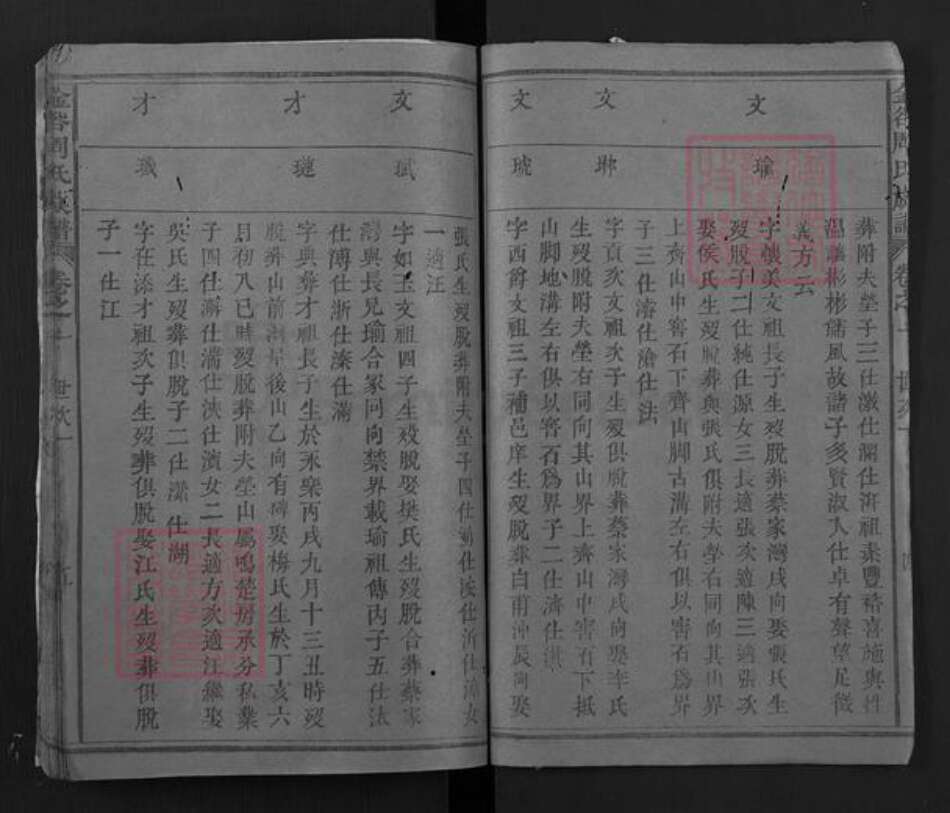 葬附夫塋子三仕瀓仕瀾仕湃祖素豐裕喜施與性
温讓彬彬儒風故諸子多賢淑人仕卓有聲望足徵
義方云
文瑜
字懷美文祖長子生歿脫葬蔡家灣戌向娶張氏生
歿脫子二仕純仕源女三長適張次適陳三適張次
娶侯氏生歿脫葬與張氏俱附夫塋右同向其山界
上齊山中窖石下齊山脚古溝左右俱以窖石為界
子三仕濬仕滄仕法
文
字貢文祖次子生歿俱脫葬蔡家灣戌向娶李氏
生歿脫附夫塋右同向其山界上齊山中窖石下抵
山脚地溝左右俱以窖石為界子二仕濟仕淇
文琥
字西爵文祖三子補邑庠生歿脫葬白甫沖辰向娶
張氏生歿脫葬附夫塋子四仕仕浤仕沂仕女
一適汪
文珷
字如玉文祖四子生歿脫娶樊氏生歿脫合葬蔡家
灣與長兄瑜合冢同向禁界載瑜祖傳內子五仕汰
仕溥仕浙仕溱仕滿
才璉
字典彝才祖長子生於永樂丙戌九月十三丑時歿
脫葬山前湖星後山乙向有碑娶梅氏生於丁亥六
月初八巳時歿脫葬附夫塋山屬鳴楚房承分私業
子四仕澥仕灊仕浹仕濱女二長適方次適江繼娶
吳氏生歿葬俱脫子二仕瀠仕湖
才璣
字在添才祖次子生歿葬俱脫娶江氏生歿葬俱脫
子一仕江